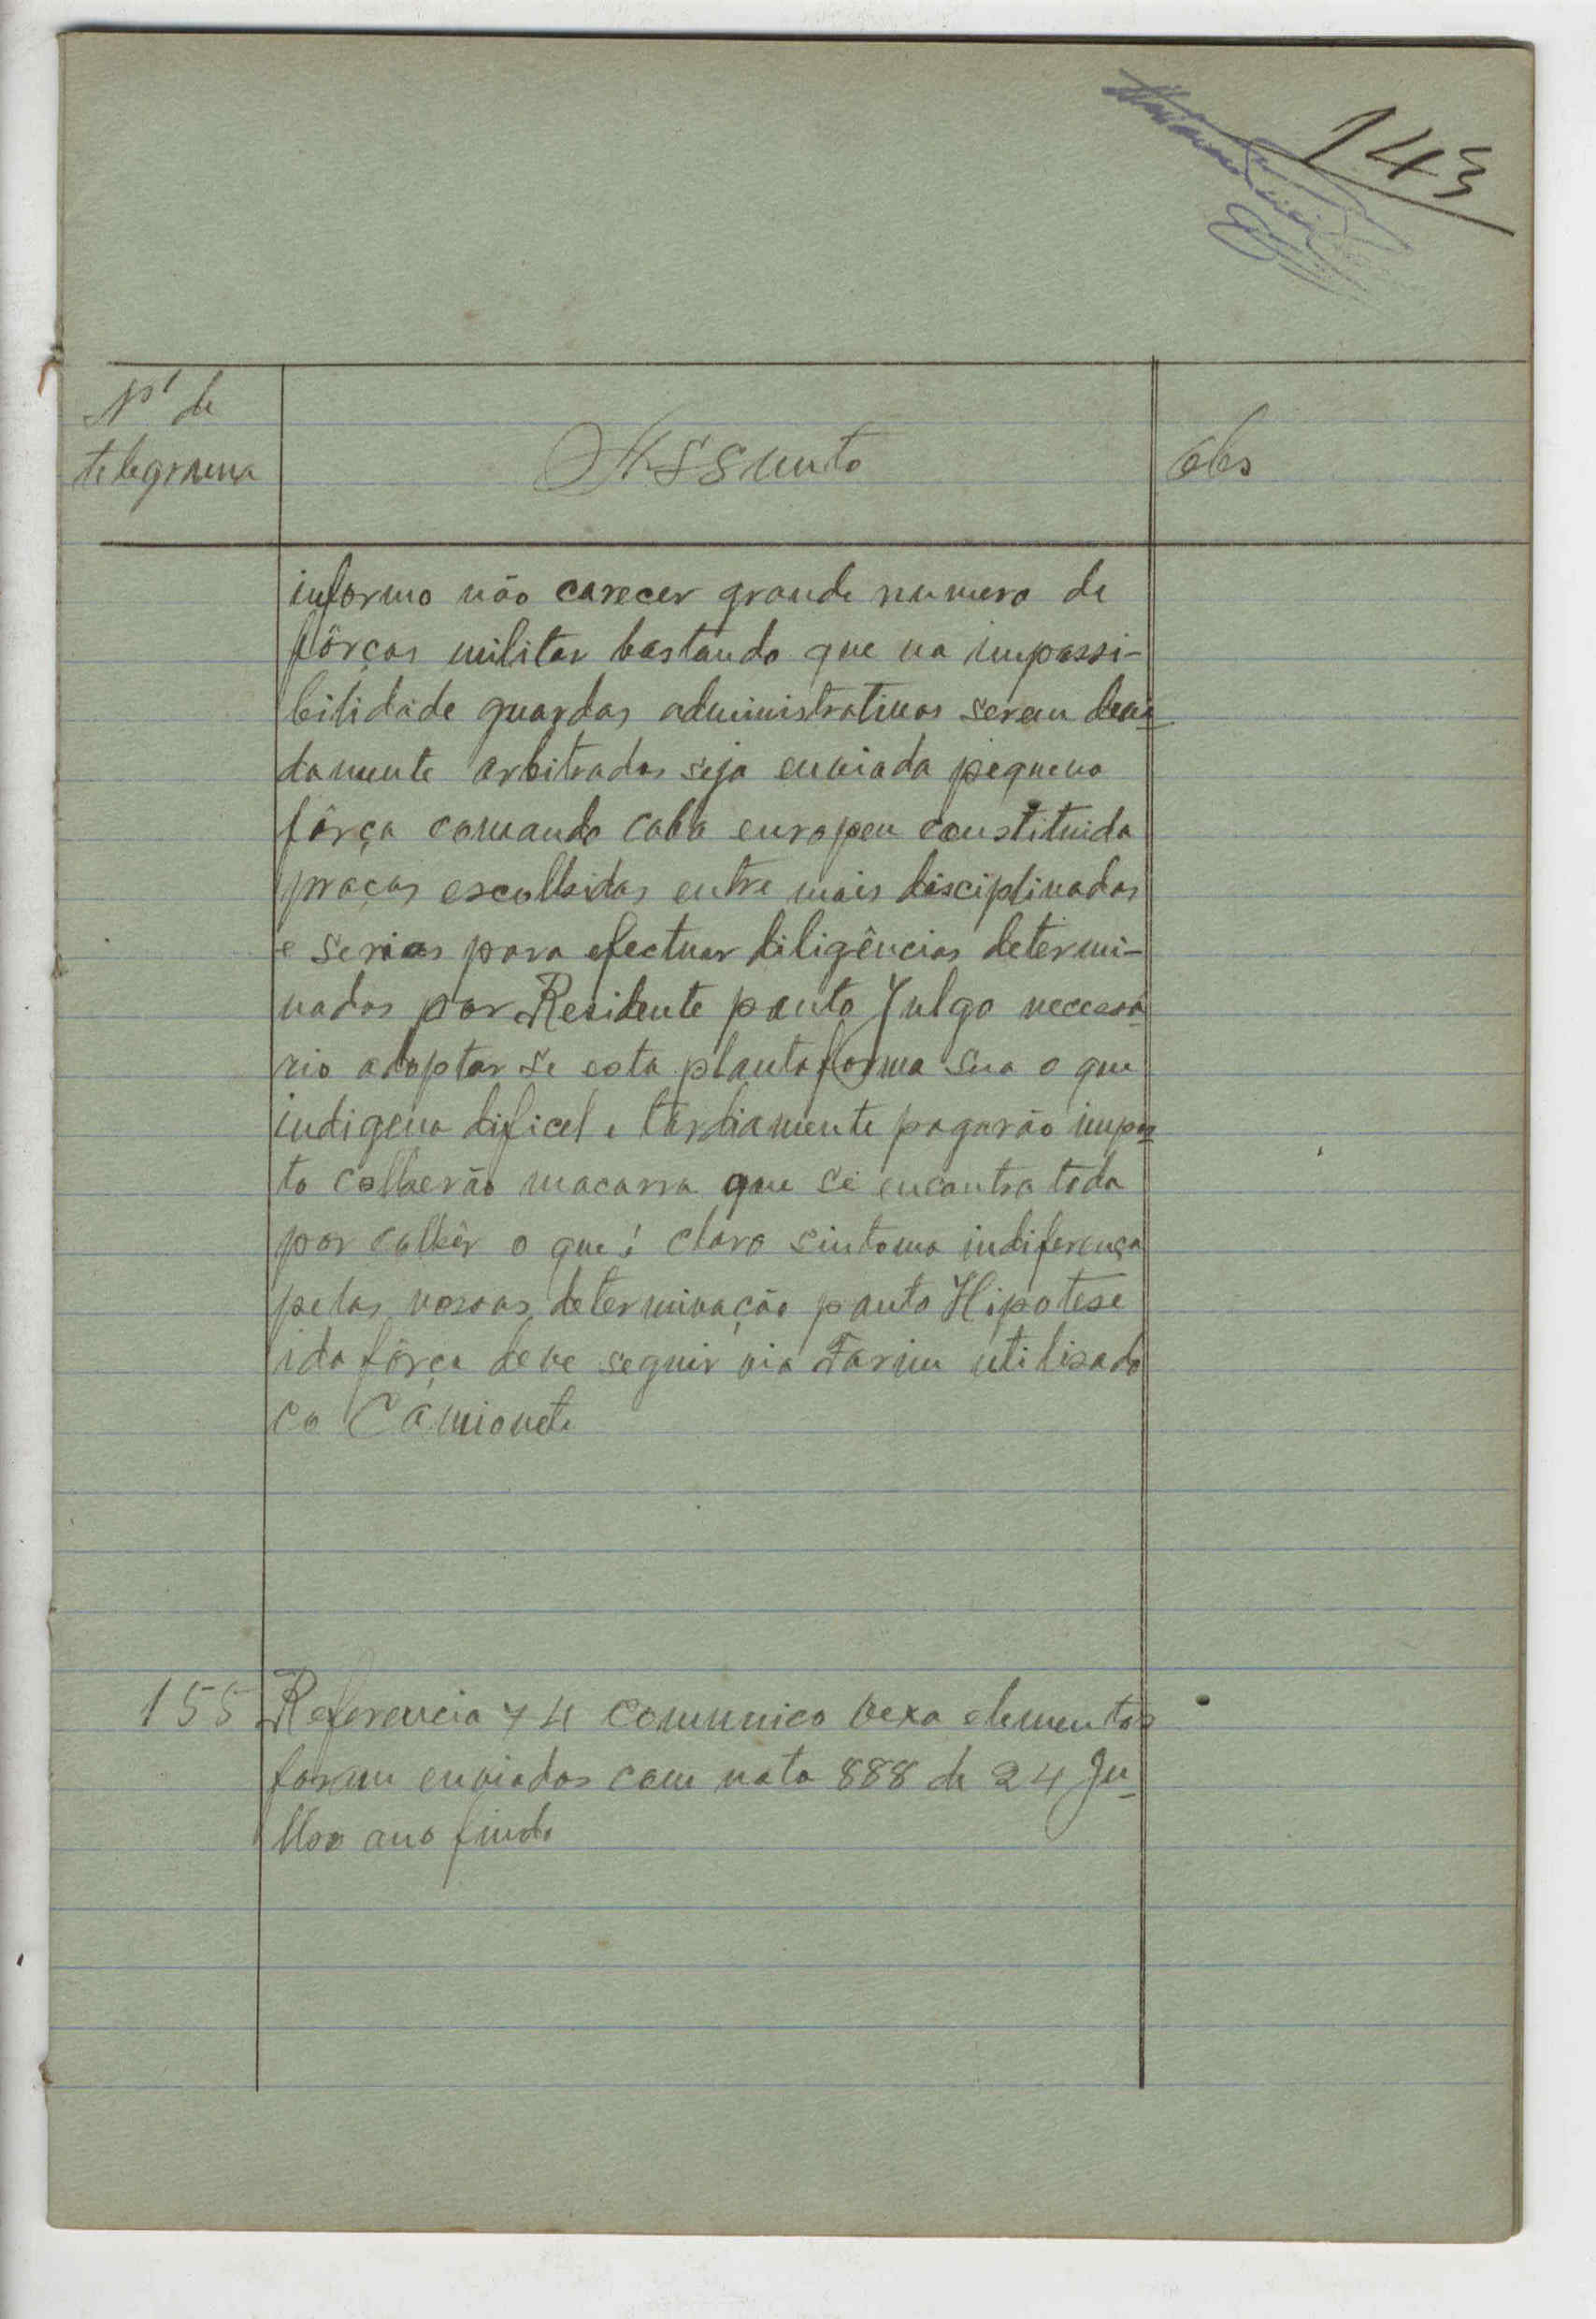 143
Nº de
telegrama
Assunto
Obs
informo não carecer grande numero de
fôrças militar bastando que na impossi-
bilidade guardas administrativos serem devi-
damente arbitrados seja enviada pequena
fôrça comando cabo europeu constituida
praças escolhidas entre mais disciplinadas
e serias para efectuar diligências determi-
nadas por Residente ponto Julgo necessá-
rio adoptar se esta plantaforma sem o que
indigena dificel e tardiamente pagarão impos-
to colherão macarra que se encontra toda
por colhêr o que é claro sintoma indiferença
pelas nossas determinação ponto Hipotese
ida fôrça deve seguir via Farim utilisado
co Camionete
155 Referencia 74 comunico vexa elementos
foram enviados com nota 888 de 24 Ju-
lho ano findo